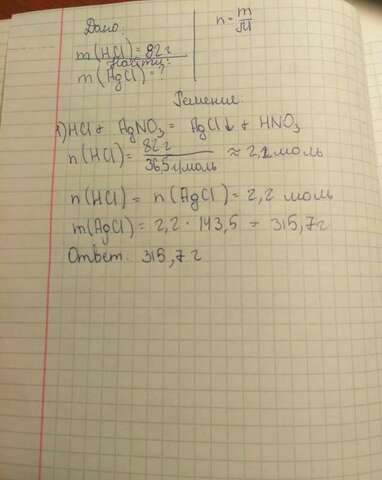 Дано:
n = m/M
m(HCl) = 82 г
Найти:
m(AgCl) = ?
Решение
1) HCl + AgNO₃ = AgCl↓ + HNO₃
n(HCl) = 82 г / 36,5 г/моль ≈ 2,2 моль
n(HCl) = n(AgCl) = 2,2 моль
m(AgCl) = 2,2 · 143,5 = 315,7 г
Ответ: 315,7 г